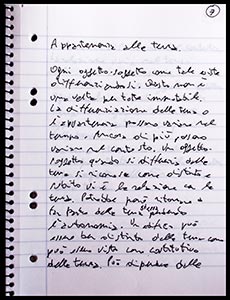 Appartenenza alla terra.
Ogni oggetto-soggetto come tale esiste
differenziandosi. Questo non è
una volta per tutte immutabile.
La differenziazione dalla terra o
l'appartenenza possono variare nel
tempo. Ancora di più possono
variare nel contesto. Un oggetto-
soggetto quando si differenzia dalla
terra si riconosce come distinto e
subito vi è la relazione con la
terra. Potrebbe però ritornare a
far parte della terra stessa perdendo
l'autonomia. Un edificio può
essere ben distinto dalla terra come
può essere visto come costitutivo
della terra. Può dipendere dalle